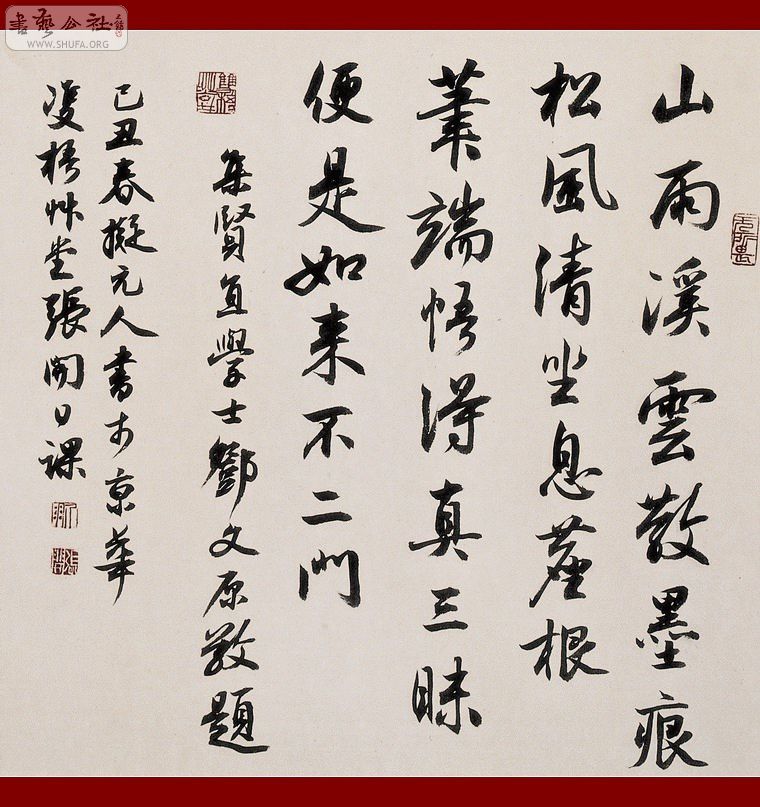 書藝公社
WWW.SHUFA.ORG
山雨溪雲散墨痕
松風清坐息塵根
筆端悟得真三昧
便是如来不二門
集賢直學士鄧文原敬題
己丑春擬元人書於京華
雙梧艸堂張開日課